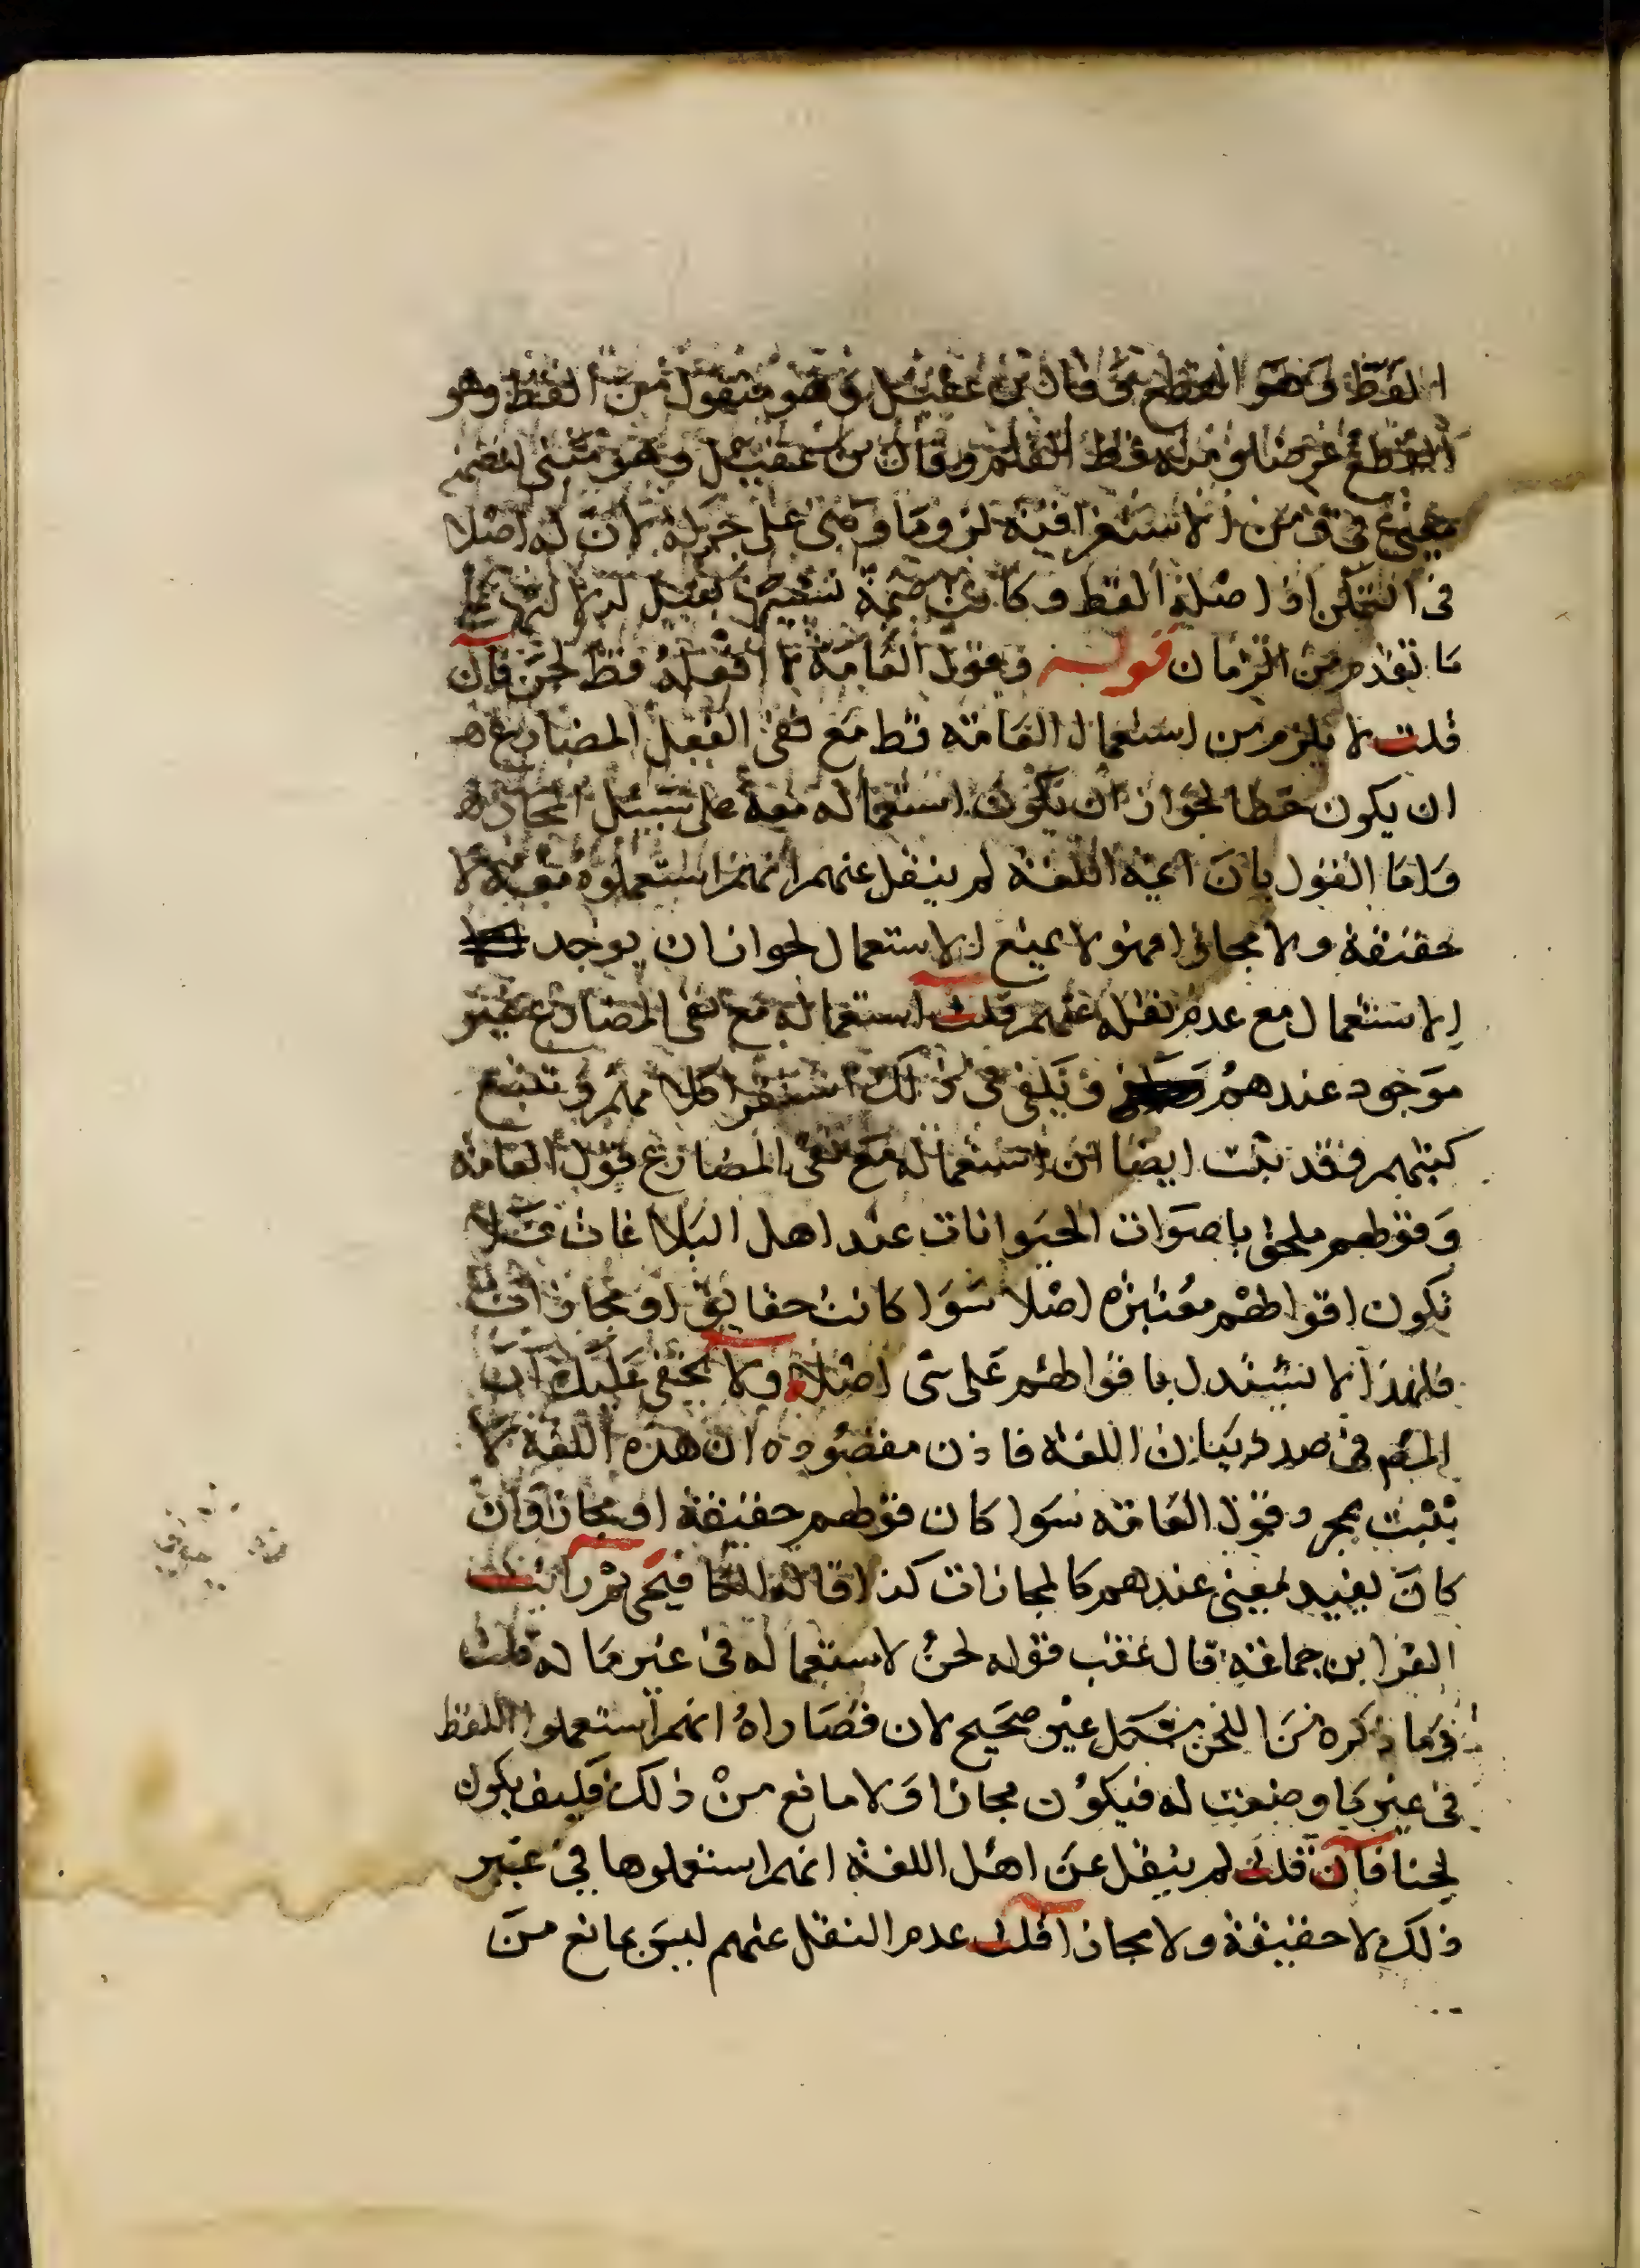 القط وهو القطع وقال بن عقيل وهو منقول من القط وهو
القطع عرضا ومنه قط القلم وقال بن عقيل وهو مبنى لتضمنه
معنى في ومن الاستغراقية لزوما وبنى على حركة لان له اصلا
فى التمكن اذ اصله القط وكانت ضمة تشبيها بقبل
ما تقدم من الزمان قوله وقول العامة لا افعله قط لحن فان
قلت لا يلزم من استعمال العامة قط مع نفى الفعل المضارع
ان يكون خطا لجواز ان يكون استعماله معه على سبيل المجاز
واما القول بان ائمة اللغة لم ينقل عنهم انهم استعملوه معه لا
حقيقة ولا مجازا فهو لا يمنع الاستعمال لجواز ان يوجد
الاستعمال مع عدم نقله عنهم قلت استعماله مع نفى المضارع غير
موجود عندهم ويكفى فى ذلك استقرا كلامهم وتتبع
كتبهم فقد ثبت ايضا ان استعماله مع نفى المضارع قول العامة
وقولهم ملحق باصوات الحيوانات عند اهل البلاغات فلا
تكون اقوالهم معتبره اصلا سوا كانت حقايق او مجازات
فلهذا لا نستدل باقوالهم على شى اصلا ولا يخفى عليك ان
المص فى صدد بيان اللغة فاذن مقصوده ان هذه اللغة لا
تثبت بمجرد قول العامة سوا كان قولهم حقيقة او مجازا وان
كان يفيد معنى عندهم كالمجازات كذا قاله الكافيجى ثم رايت
العز ابن جماعة قال عقب قوله لحن لاستعماله فى غير ما له قلت
وما ذكره من اللحن مشكل غير صحيح لان قصاراه انهم استعملوا اللفظ
فى غير ما وضعت له فيكون مجازا ولا مانع من ذلك فكيف يكون
لحنا فان قلت لم ينقل عن اهل اللغة انهم استعملوها في غير
ذلك لا حقيقة ولا مجازا قلت عدم النقل عنهم ليس بمانع من